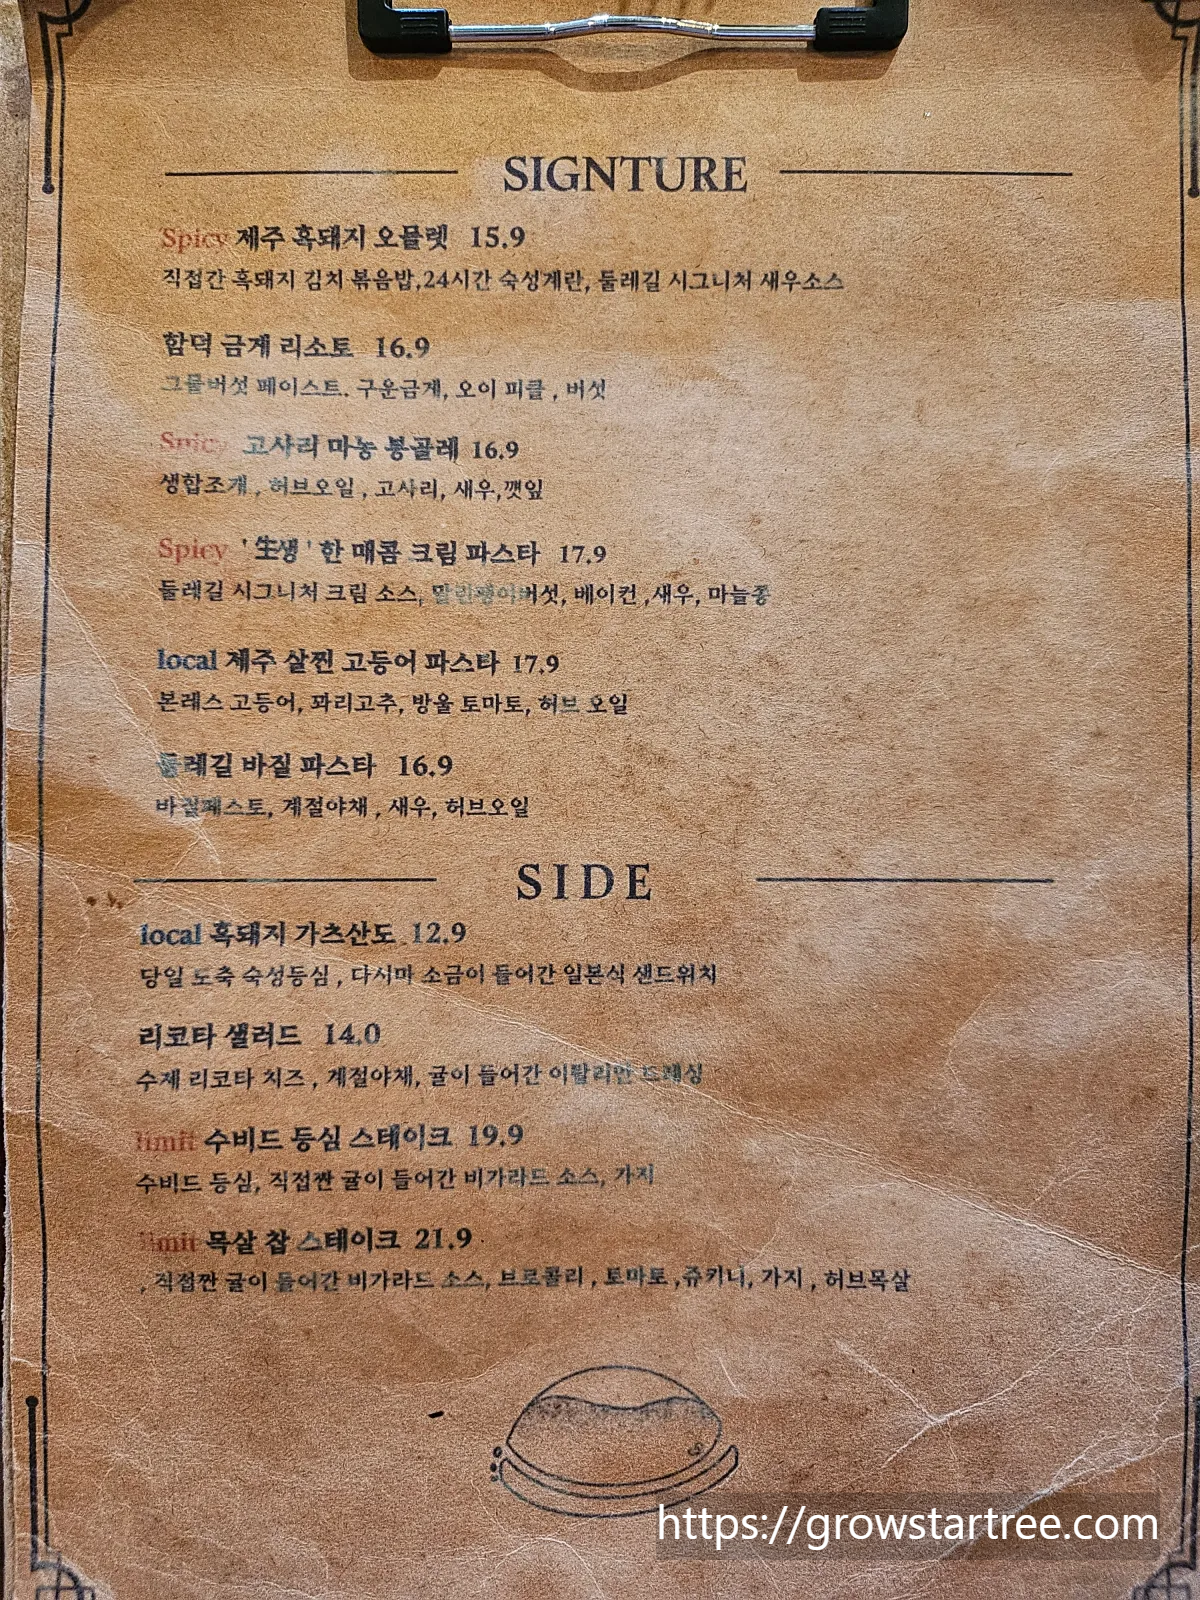 SIGNTURE
Spicy 제주 흑돼지 오믈렛 15.9
직접간 흑돼지 김치 볶음밥,24시간 숙성계란, 둘레길 시그니처 새우소스
함덕 금게 리소토 16.9
그물버섯 페이스트. 구운금게, 오이 피클 , 버섯
Spicy 고사리 마농 봉골레 16.9
생합조개 , 허브오일 , 고사리, 새우,깻잎
Spicy ' 生생 ' 한 매콤 크림 파스타 17.9
둘레길 시그니처 크림 소스, 말린팽이버섯, 베이컨 ,새우, 마늘쫑
local 제주 살찐 고등어 파스타 17.9
본레스 고등어, 꽈리고추, 방울 토마토, 허브 오일
둘레길 바질 파스타 16.9
바질페스토, 계절야채 , 새우, 허브오일
SIDE
local 흑돼지 가츠산도 12.9
당일 도축 숙성등심 , 다시마 소금이 들어간 일본식 샌드위치
리코타 샐러드 14.0
수제 리코타 치즈 , 계절야채, 귤이 들어간 이탈리안 드레싱
limit 수비드 등심 스테이크 19.9
수비드 등심, 직접짠 귤이 들어간 비가라드 소스, 가지
limit 목살 찹 스테이크 21.9
, 직접짠 귤이 들어간 비가라드 소스, 브로콜리 , 토마토 ,쥬키니, 가지 , 허브목살
https://growstartree.com